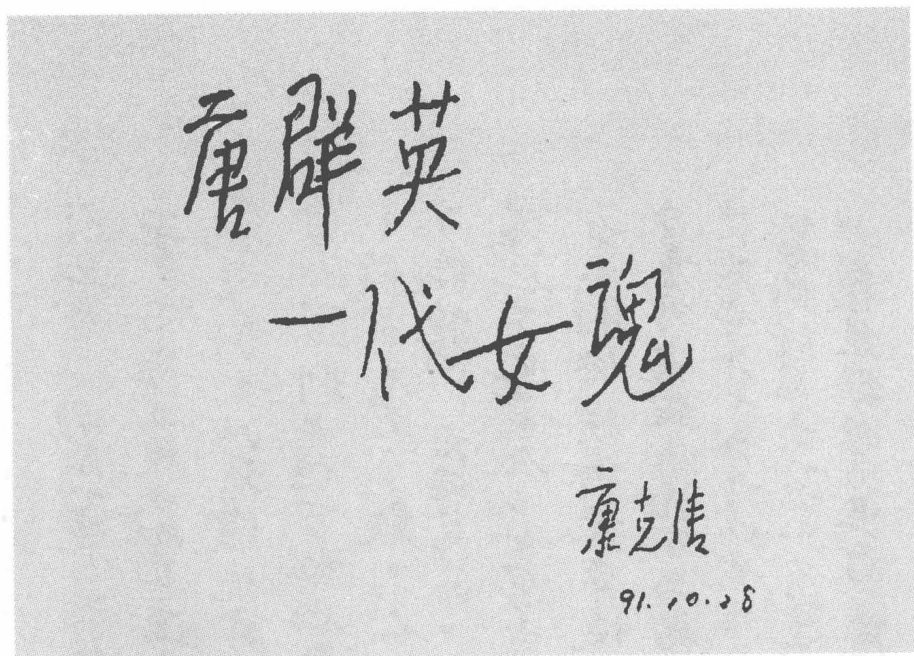 唐群英
一代女魂
康克清
91.10.28